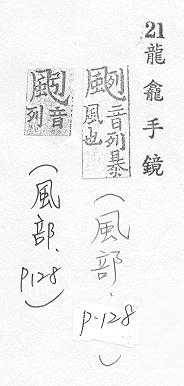 21龍龕手鏡
颲音列暴風也
(風部、
p.128)
音列
(風部、
p128)